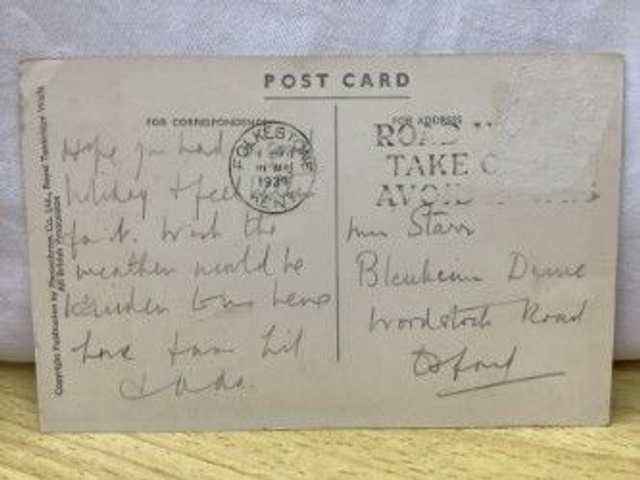 POST CARD
FOR CORRESPONDENCE
FOR ADDRESS
FOLKESTONE
1939
KENT
ROAD
TAKE C
AVOID
Hope you had
holiday & feel
for it. Wish the
weather would be
kinder to us here
Love from Lil
Starr
Blenheim Drive
Woodstock Road
Oxford
Copyright Publication by Photochrom Co. Ltd., Royal Tunbridge Wells
All British Production